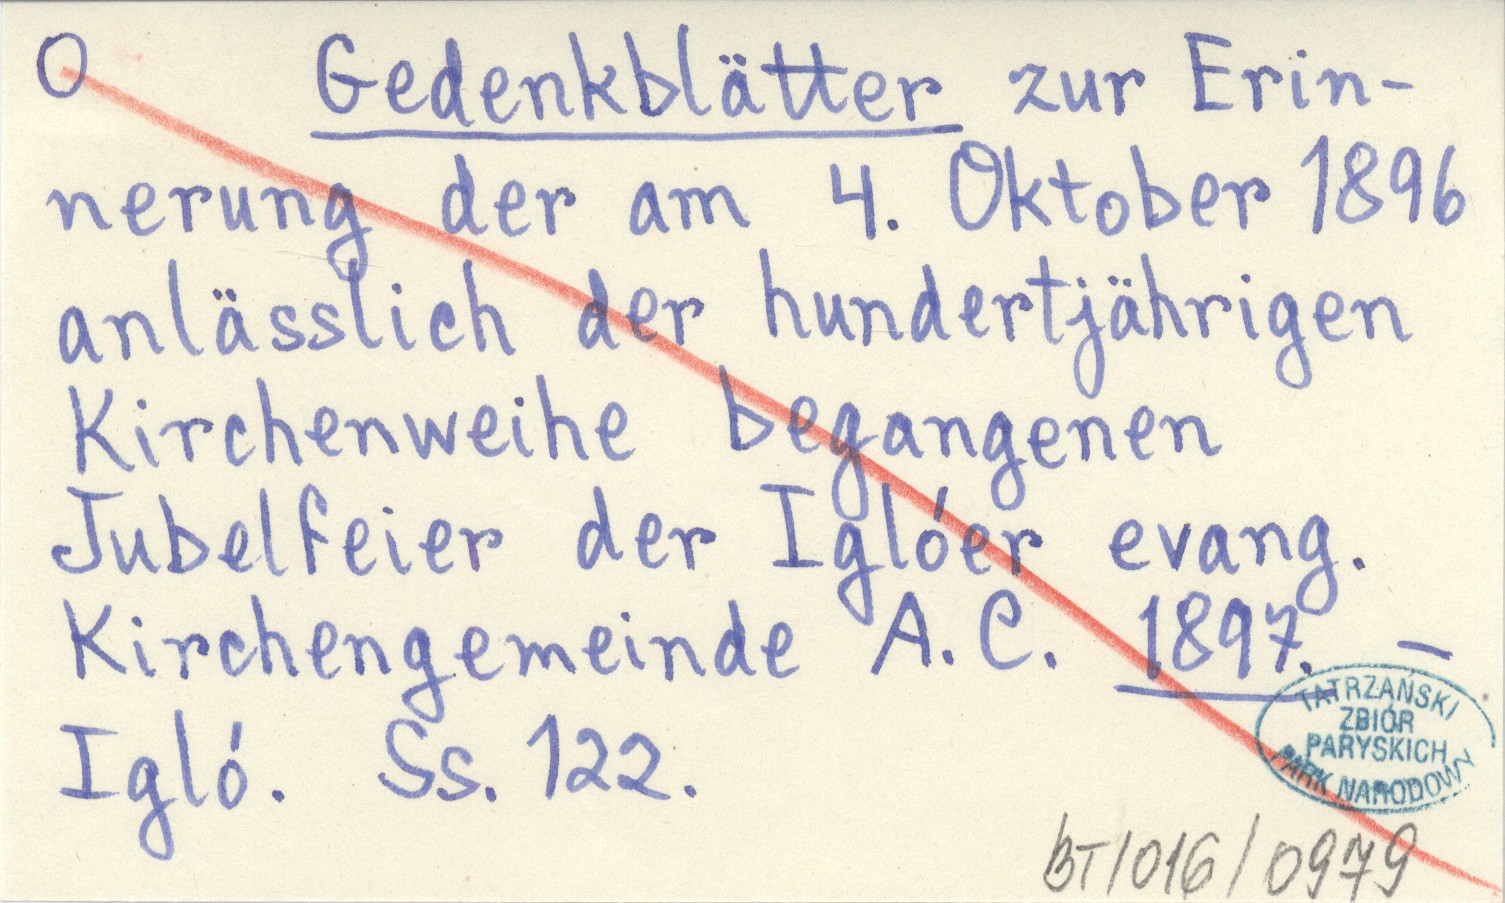 O Gedenkblätter zur Erin-
nerung der am 4. Oktober 1896
anlässlich der hundertjährigen
Kirchenweihe begangenen
Jubelfeier der Iglóer evang.
Kirchengemeinde A. C. 1897. –
Igló. Ss. 122.
TATRZAŃSKI
ZBIÓR
PARYSKICH
PARK NARODOWY
BT/016/0979